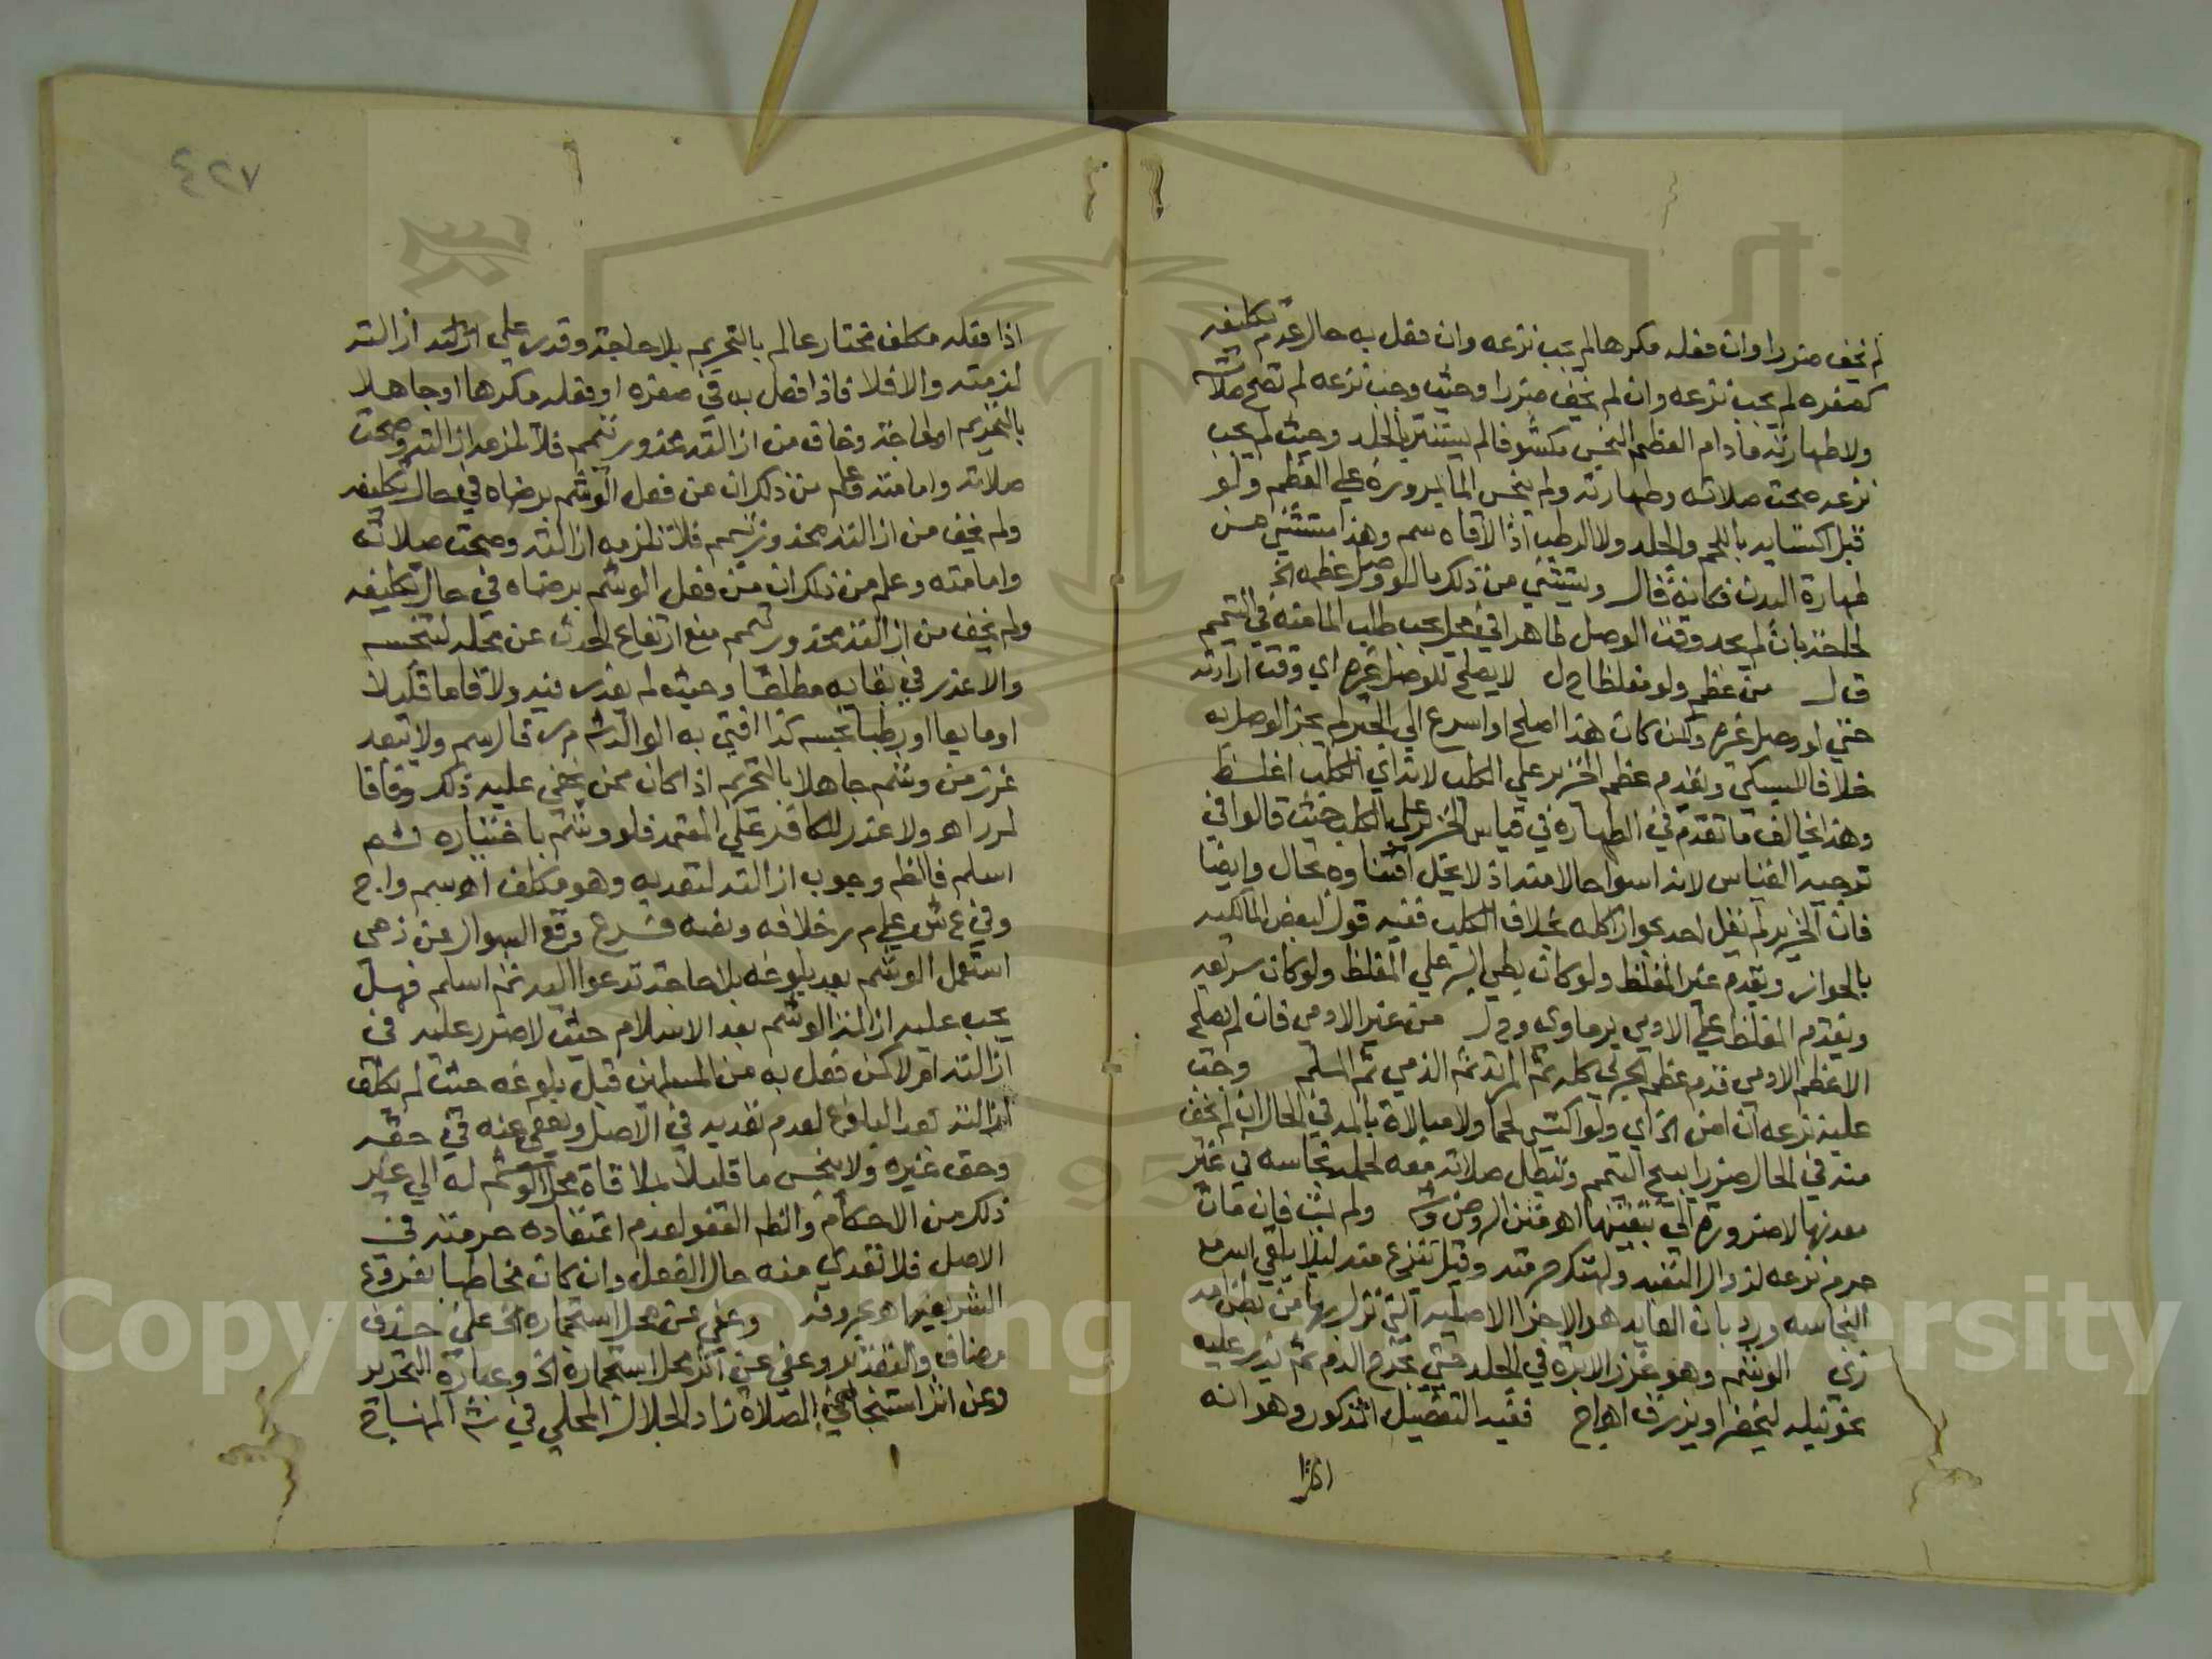 لم يخف ضررا وان فعله مكرها لم يجب نزعه وان فعل به حال عدم تكليفه
كصغره لم يجب نزعه وان لم يخف ضررا وحيث وجب نزعه لم تصح صلاته
ولا طهارته ما دام العظم النجس مكشوفا لم يستتر بالجلد وحيث لم يجب
نزعه صحت صلاته وطهارته ولم ينجس الما بمروره على العظم ولو
قبل اكتسايه باللحم والجلد ولا الرطب اذا لاقاه سم وهذا مستثنى من
طهارة البدن فكانه قال ويستثنى من ذلك ما لو وصل عظمه الخ
لحاجة بان لم يجد وقت الوصل طاهرا في محل يجب طلب الما منه في التيمم
قال من عظم ولو مغلظا ح ل لا يصلح للوصل غيره اي وقت ارادته
حتى لو وصل غيره وان كان هذا اصلح او اسرع الى الجبر لم يجز الوصل به
خلافا للسبكي ويقدم عظم الخنزير على الكلب لانه اي الكلب اغلظ
وهذا يخالف ما تقدم في الطهارة في قياس الخنزير على الكلب حيث قالوا في
توجيه القياس لانه اسوا حالا منه اذ لا يحل اقتناوه بحال وايضا
فان الخنزير لم يقل احد بجواز اكله بخلاف الكلب ففيه قول لبعض المالكيه
بالجواز ويقدم غير المغلظ ولو كان بطي البر على المغلظ ولو كان سريعه
ويقدم المغلظ على الادمي برماوي و ح ل من غير الادمي فان لم يصلح
الا عظم الادمي قدم عظم الحربي كله ثم المرتد ثم الذمي ثم المسلم وجب
عليه نزعه ان امن الخ اي ولو اكتسى لحما ولا مبالاة بالمه في الحال ان لم يخف
منه في الحال ضررا يبيح التيمم وتبطل صلاته معه لحمله نجاسه في غير
معدنها لا ضرورة الى تبقيتها اه متن الروض وش ولم يثب فان مات
حرم نزعه لزوال التقيد ولهتك حرمته وقيل ينزع منه ليلا يلقى الله مع
النجاسه ورد بان العايد هو الاجزا الاصليه التي نزل بها من بطن امه
زي الوشم وهو غرز الابرة في الجلد حتى يخرج الدم ثم يذر عليه
نحو نيله ليخضر او يزرق اه ا ج ففيه التفصيل المذكور وهو انه
اذا
٤٢٧
اذا فعله مكلف مختار عالم بالتحريم بلا حاجة وقدر على ازالته ازالته
لزمته والا فلا فاذا فعل به في صغره او فعله مكرها او جاهلا
بالتحريم او لحاجة وخاف من ازالته محذور تيمم فلا تلزمه ازالته وصحت
صلاته وامامته وعلم من ذلك ان من فعل الوشم برضاه في حال تكليفه
ولم يخف من ازالته محذور تيمم فلا تلزمه ازالته وصحت صلاته
وامامته وعلم من ذلك ان من فعل الوشم برضاه في حال تكليفه
ولم يخف من ازالته محذور تيمم منع ارتفاع الحدث عن محله لتنجسه
والا عذر في بقايه مطلقا وحيث لم يعذر فيه ولاقا ما قليلا
او مايعا او رطبا نجسه كذا افتى به الوالد ش م ر قال سم ولا يبعد
عذر من وشم جاهلا بالتحريم اذا كان ممن يخفى عليه ذلك وفاقا
لم ر اه ولا عذر للكافر على المعتمد فلو وشم باختياره ثم
اسلم فالظم وجوب ازالته لتعديه وهو مكلف اه سم و ا ج
وفي ع ش على م ر خلافه ونصه فرع وقع السوال عن ذمي
استعمل الوشم بعد بلوغه بلا حاجة تدعوا اليه ثم اسلم فهل
يجب عليه ازالة الوشم بعد الاسلام حيث لا ضرر عليه في
ازالته ام لا كمن فعل به من المسلمين قبل بلوغه حيث لم يكلف
ازالته بعد البلوغ لعدم تعديه في الاصل ويعفى عنه في حقه
وحق غيره ولا ينجس ما قليلا بملاقاة محل الوشم له الى غير
ذلك من الاحكام والظه العفو لعدم اعتقاده حرمته في
الاصل فلا تعدي منه حال الفعل وان كان مخاطبا بفروع
الشريعة اه بحروفه وعفي عن محل استجماره الخ على حذف
مضاف والتقدير وعفي عن اثر محل استجماره الخ وعبارة التحرير
وعن اثر استنجا في الصلاة زاد الجلال المحلي في ش المنهاج
Copyright © King Saud University
1957